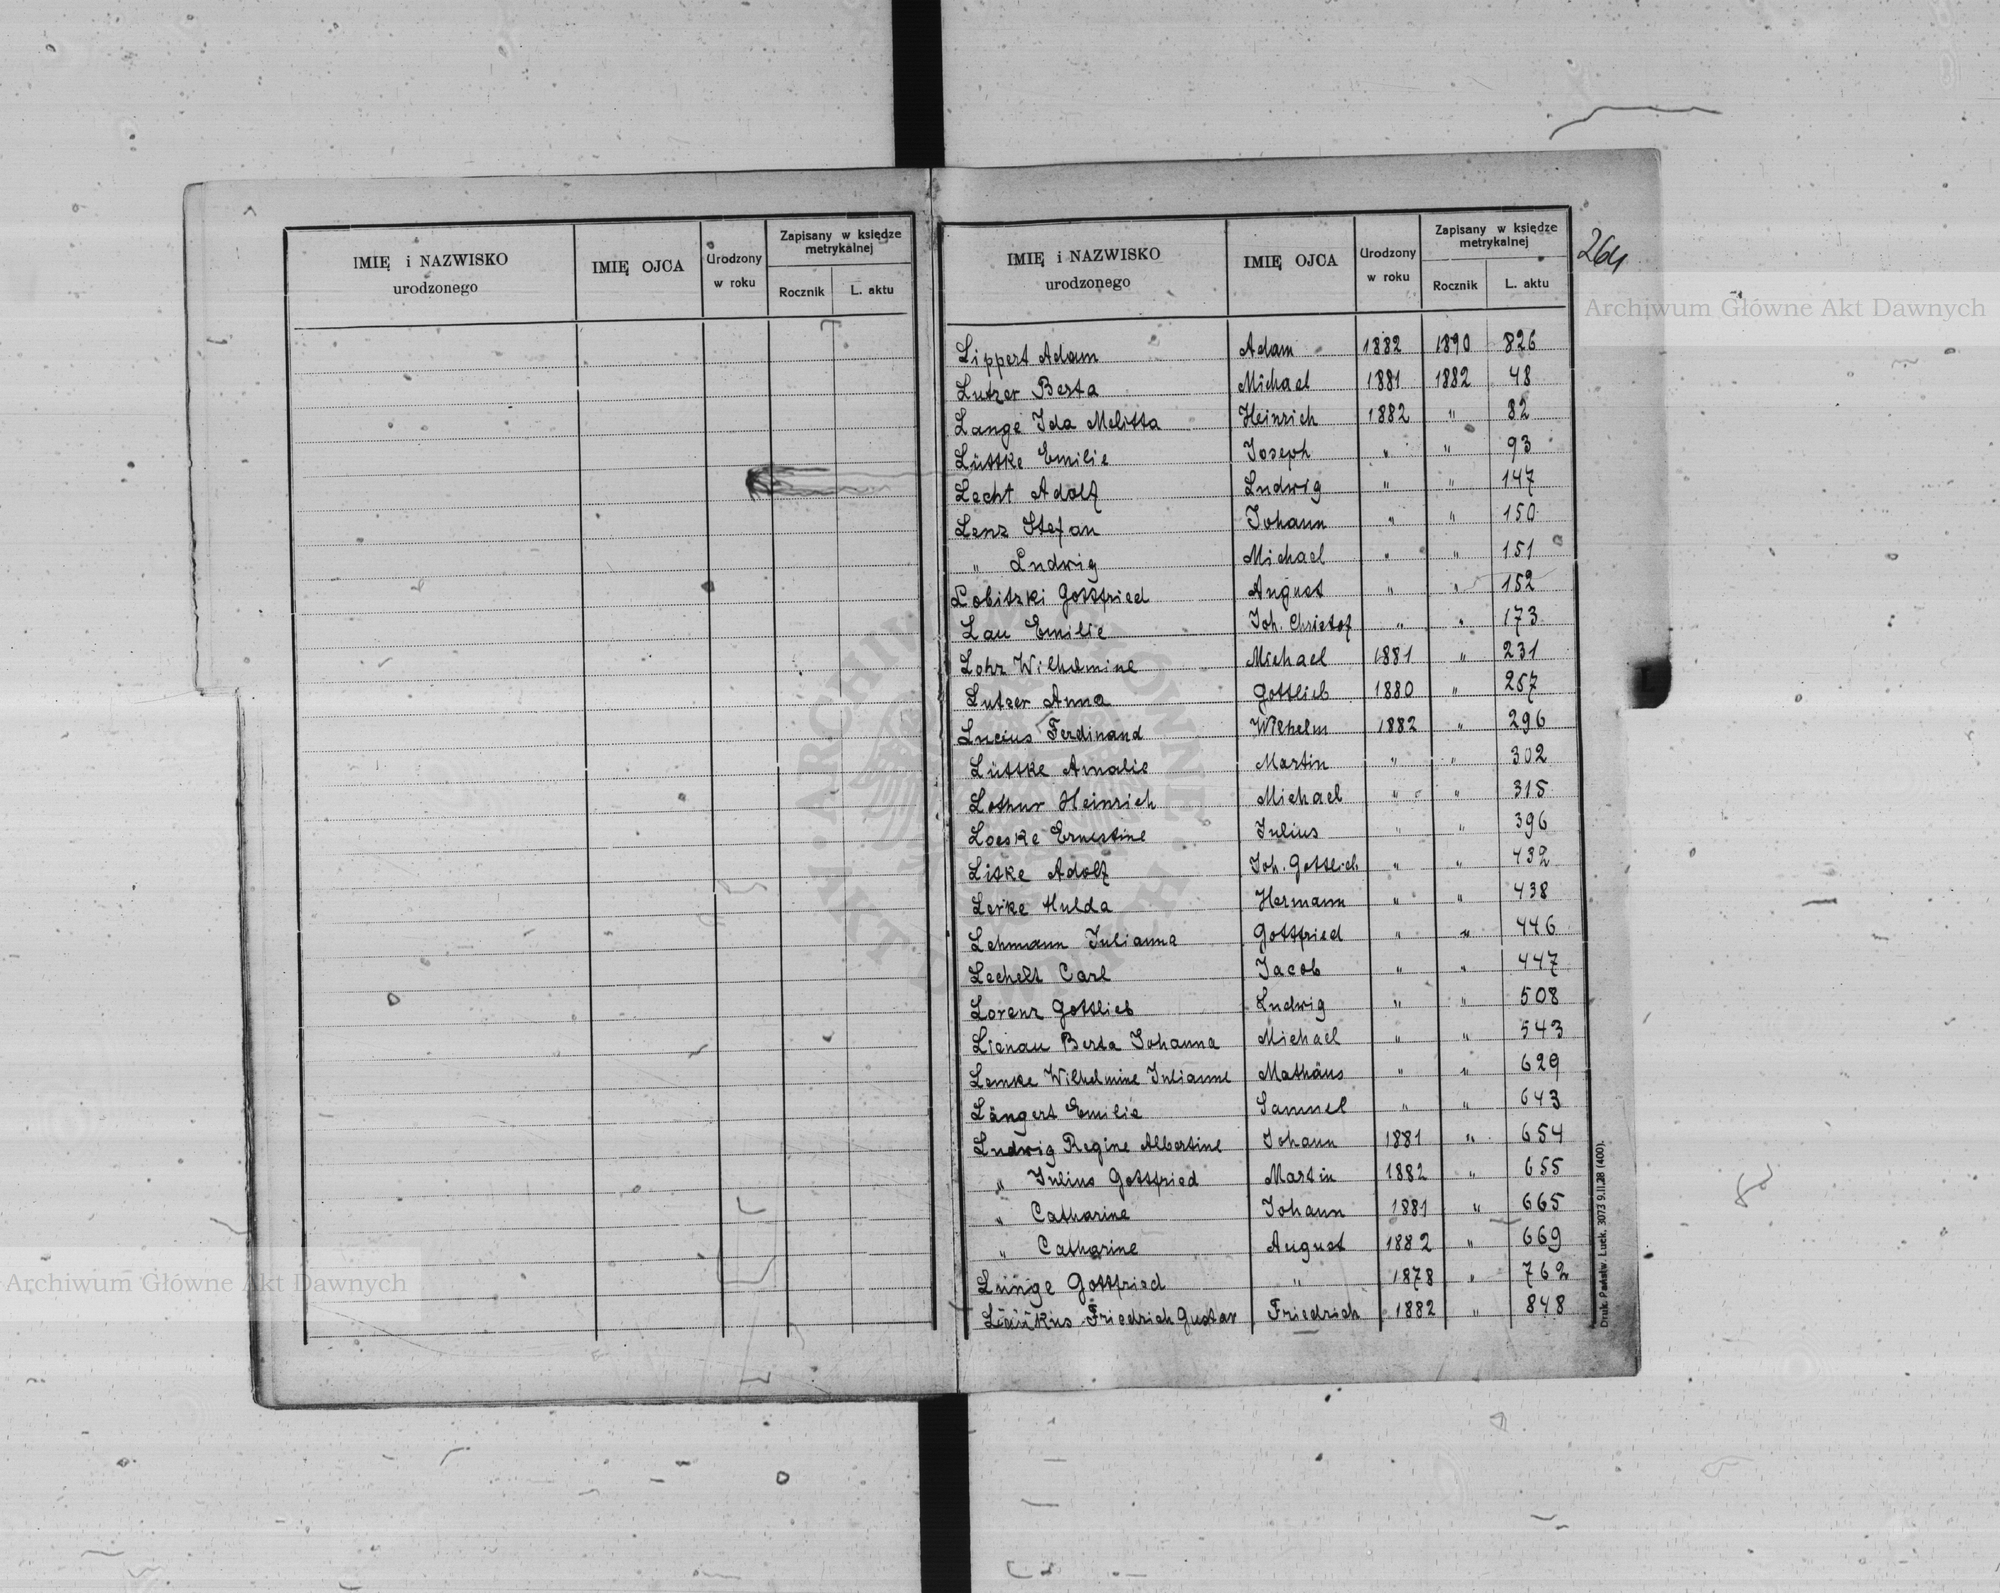 IMIĘ i NAZWISKO urodzonego IMIĘ OJCA Urodzony w roku Zapisany w księdze metrykalnej Rocznik L. aktu
IMIĘ i NAZWISKO urodzonego IMIĘ OJCA Urodzony w roku Zapisany w księdze metrykalnej Rocznik L. aktu
264
Archiwum Główne Akt Dawnych
Lippert Adam Adam 1882 1890 826
Lutzer Berta Michael 1881 1882 48
Lange Ida Melitta Heinrich 1882 " 82
Lüttke Emilie Joseph " " 93
Lecht Adolf Ludwig " " 147
Lenz Stefan Johann " " 150
" Ludwig Michael " " 151
Lobitzki Gottfried August " " 152
Lau Emilie Joh. Christof " " 173
Lohr Wilhelmine Michael 1881 " 231
Lutzer Anna Gottlieb 1880 " 257
Lucius Ferdinand Wilhelm 1882 " 296
Lüttke Amalie Martin " " 302
Heinrich Michael " " 315
Loeske Ernestine Julius " " 396
Liske Adolf Joh. Gottlieb " " 432
Lerke Hulda Hermann " " 438
Lehmann Julianna Gottfried " " 446
Lechelt Carl Jacob " " 447
Lorenz Gottlieb Ludwig " " 508
Lienau Berta Johanna Michael " " 543
Lemke Wilhelmine Julianne Mathäus " " 629
Längert Emilie Samuel " " 643
Ludwig Regine Albertine Johann 1881 " 654
" Julius Gottfried Martin 1882 " 655
" Catharine Johann 1881 " 665
" Catharine August 1882 " 669
Lünge Gottfried " 1878 " 762
Friedrich Gustav Friedrich 1882 " 848
Druk. Państw. Łuck. 3073 9.II.28 (400).
ARCHIWUM GŁÓWNE AKT DAWNYCH
Archiwum Główne Akt Dawnych